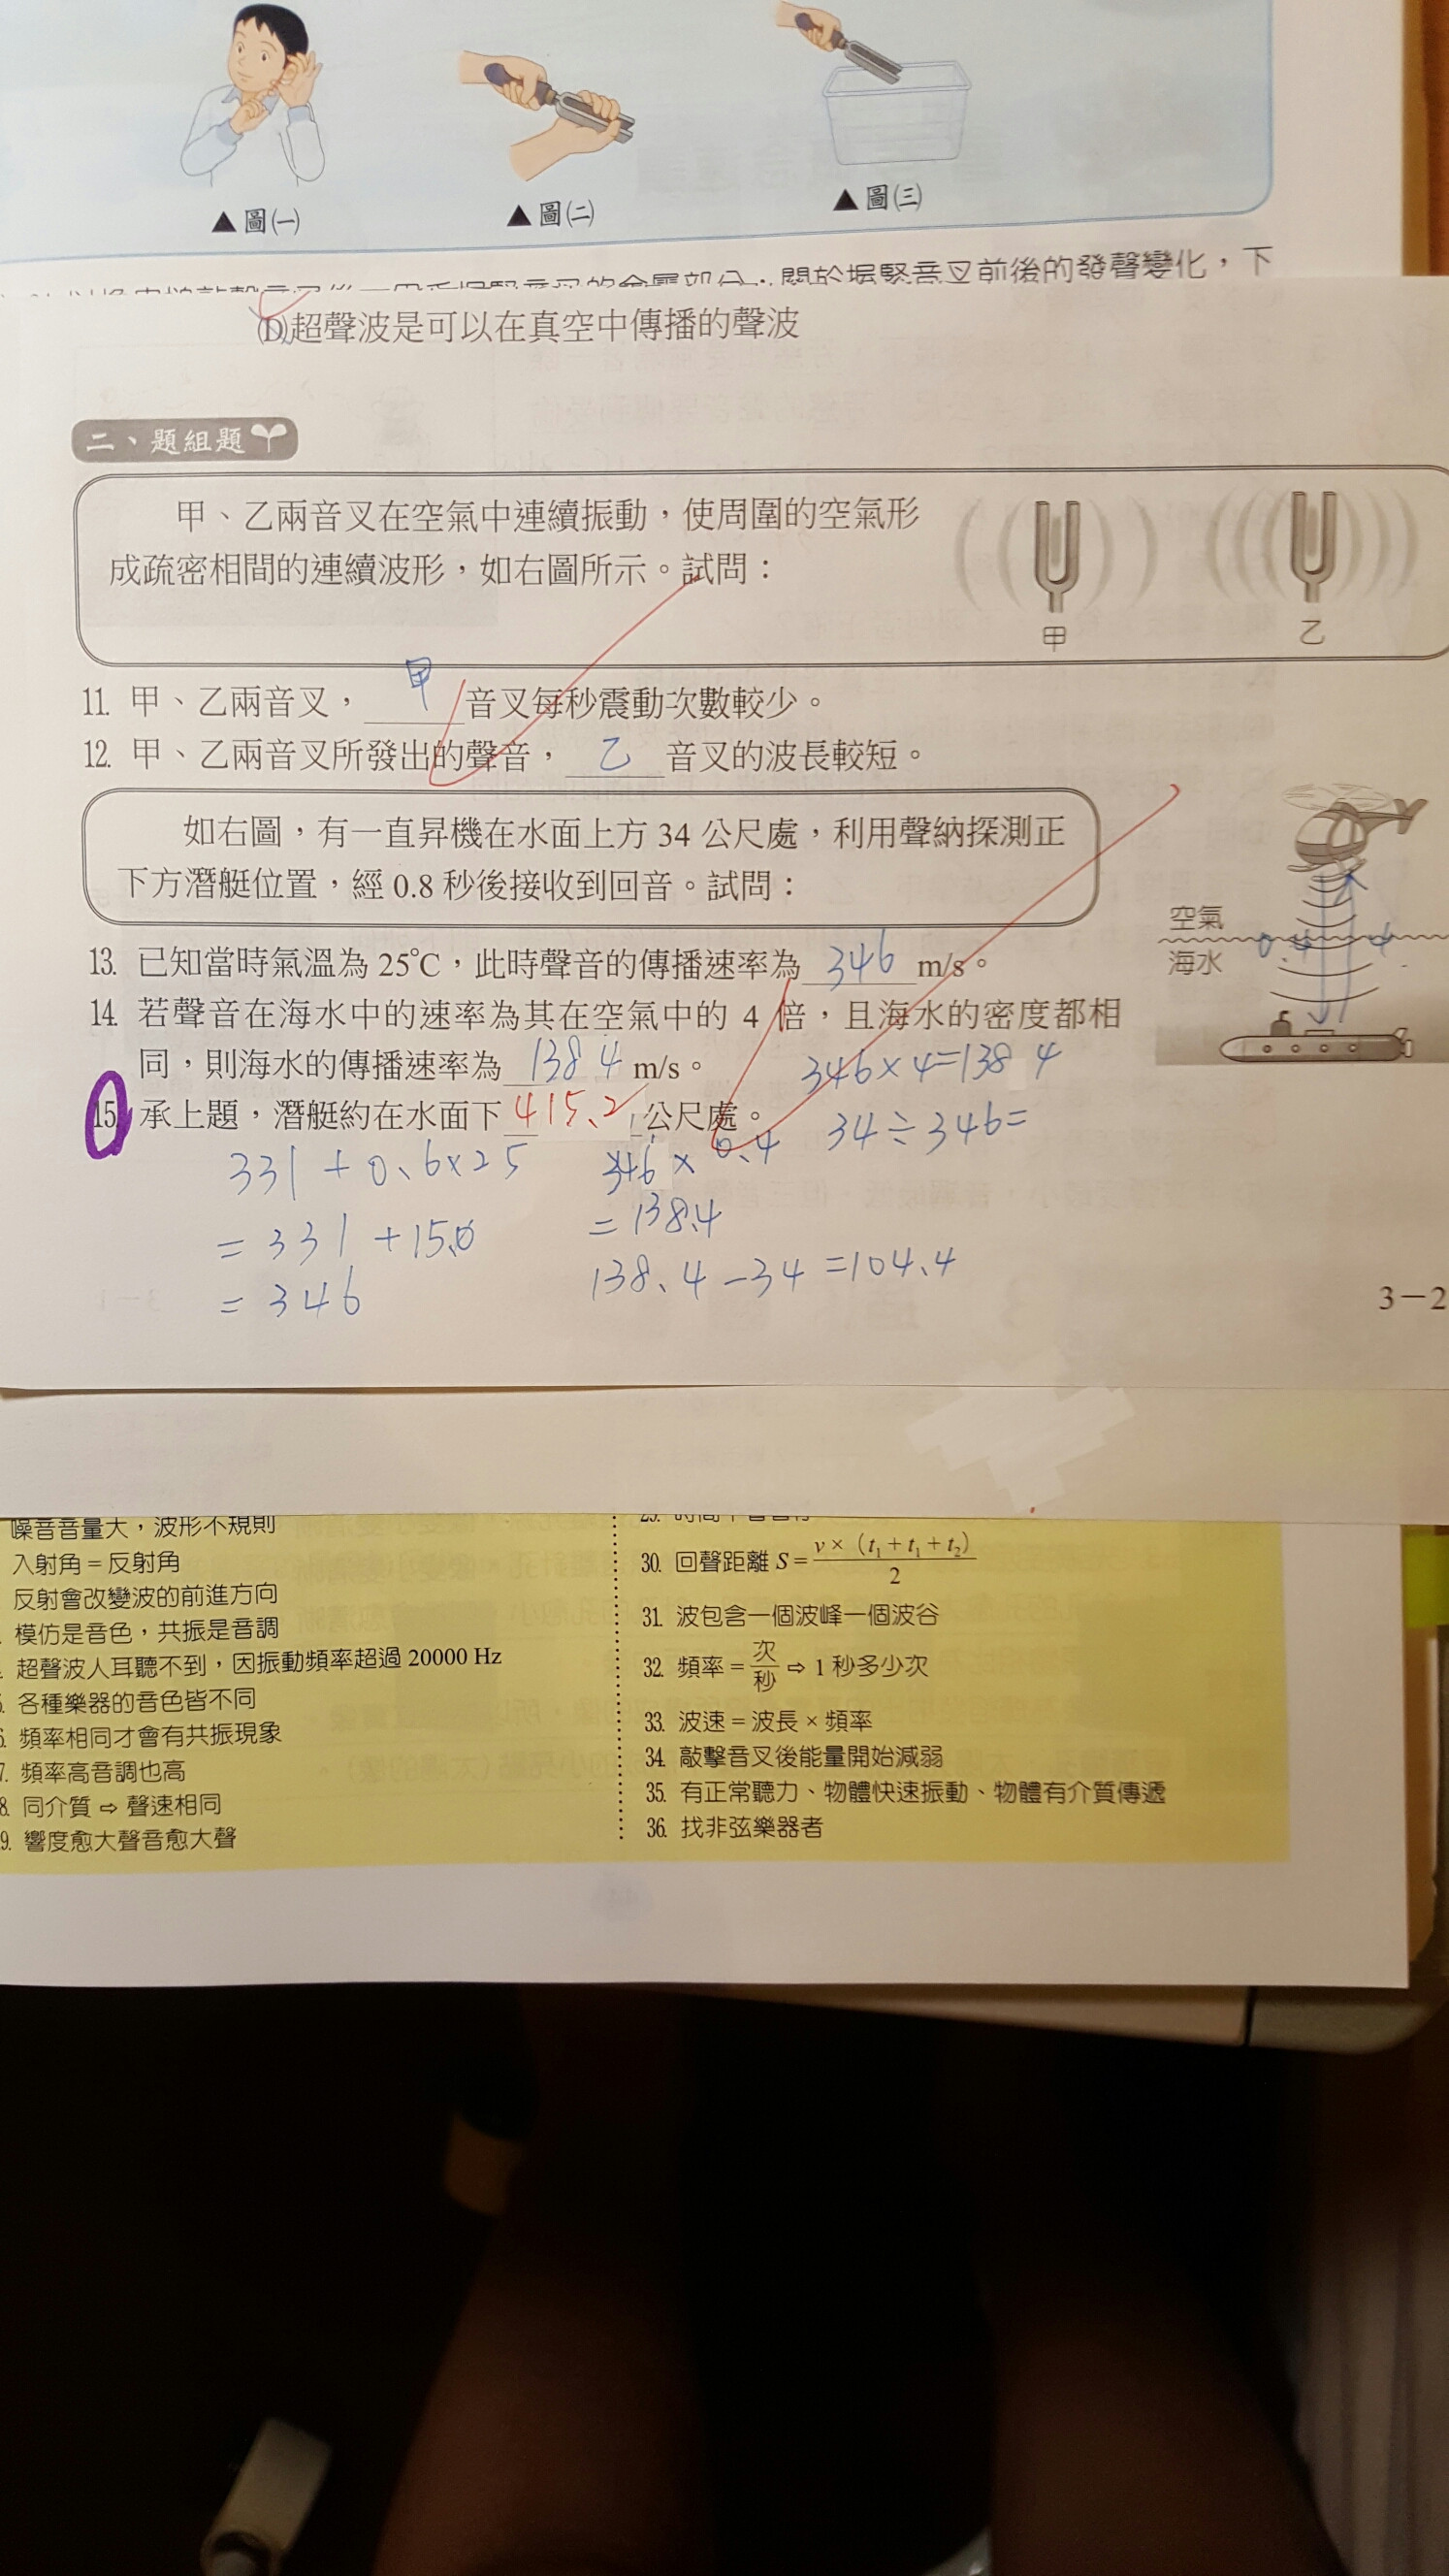 ▲圖㈠
▲圖㈡
▲圖㈢
後一用手握緊音叉的金屬部分,關於握緊音叉前後的發聲變化,下
(D)超聲波是可以在真空中傳播的聲波
二、題組題
甲、乙兩音叉在空氣中連續振動,使周圍的空氣形
成疏密相間的連續波形,如右圖所示。試問:
甲
乙
11. 甲、乙兩音叉, 甲 音叉每秒震動次數較少。
12. 甲、乙兩音叉所發出的聲音, 乙 音叉的波長較短。
如右圖,有一直昇機在水面上方 34 公尺處,利用聲納探測正
下方潛艇位置,經 0.8 秒後接收到回音。試問:
空氣
海水
0.4
4
13. 已知當時氣溫為 25℃,此時聲音的傳播速率為 346 m/s。
14. 若聲音在海水中的速率為其在空氣中的 4 倍,且海水的密度都相
同,則海水的傳播速率為 1384 m/s。
346×4=1384
15. 承上題,潛艇約在水面下 415.2 公尺處。
34÷346=
331+0.6×25
=331+15.0
=346
346×0.4
=138.4
138.4-34=104.4
3-2
噪音音量大,波形不規則
入射角=反射角
反射會改變波的前進方向
模仿是音色,共振是音調
超聲波人耳聽不到,因振動頻率超過 20000 Hz
各種樂器的音色皆不同
頻率相同才會有共振現象
7. 頻率高音調也高
8. 同介質⇨聲速相同
9. 響度愈大聲音愈大聲
30. 回聲距離 S=v×(t₁+t₁+t₂)/2
31. 波包含一個波峰一個波谷
32. 頻率=次/秒⇨1 秒多少次
33. 波速=波長×頻率
34. 敲擊音叉後能量開始減弱
35. 有正常聽力、物體快速振動、物體有介質傳遞
36. 找非弦樂器者